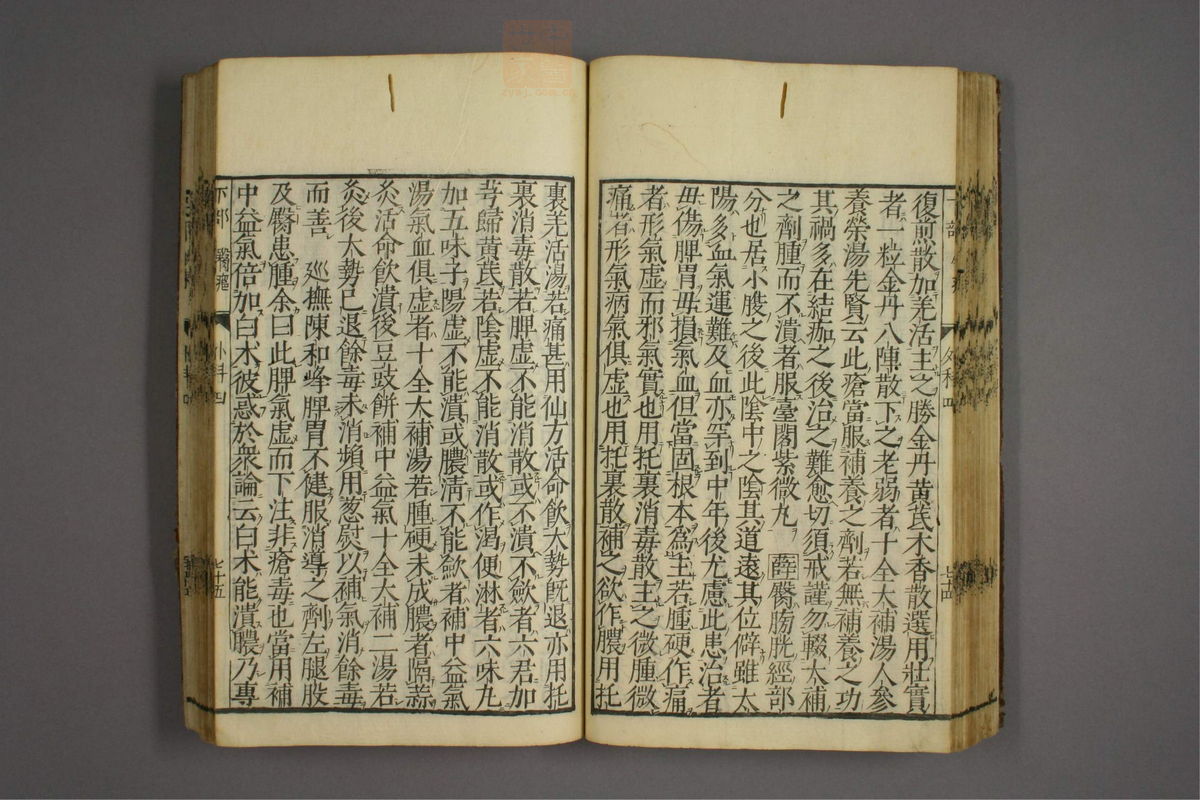 復煎散加羌活主之勝金丹黃芪木香散選用壯實
者一粒金丹八陣散下之老弱者十全大補湯人參
養榮湯先賢云此瘡當服補養之劑若無補養之功
其禍多在結痂之後治之難愈切須戒謹勿輟大補
之劑腫而不潰者服臺閣紫微丸 薛臀膀胱經部
分也居小腹之後此陰中之陰其道遠其位僻雖太
陽多血氣運難及血亦罕到中年後尤慮此患治者
毋傷脾胃毋損氣血但當固根本爲主若腫硬作痛
者形氣虛而邪氣實也用托裏消毒散主之微腫微
痛者形氣病氣俱虛也用托裏散補之欲作膿用托
裏羌活湯若痛甚用仙方活命飲大勢既退亦用托
裏消毒散若脾虛不能消散或不潰不歛者六君加
芎歸黃芪若陰虛不能消散或作渴便淋者六味丸
加五味子陽虛不能潰或膿清不能歛者補中益氣
湯氣血俱虛者十全大補湯若腫硬未成膿者隔蒜
灸活命飲潰後豆豉餅補中益氣十全大補二湯若
灸後大勢已退餘毒未消頻用葱熨以補氣消餘毒
而善 廵撫陳和峰脾胃不健服消導之劑左腿股
及臀患腫余曰此脾氣虛而下注非瘡毒也當用補
中益氣倍加白朮彼惑於衆論云白朮能潰膿乃專
下部
外科四
七十五